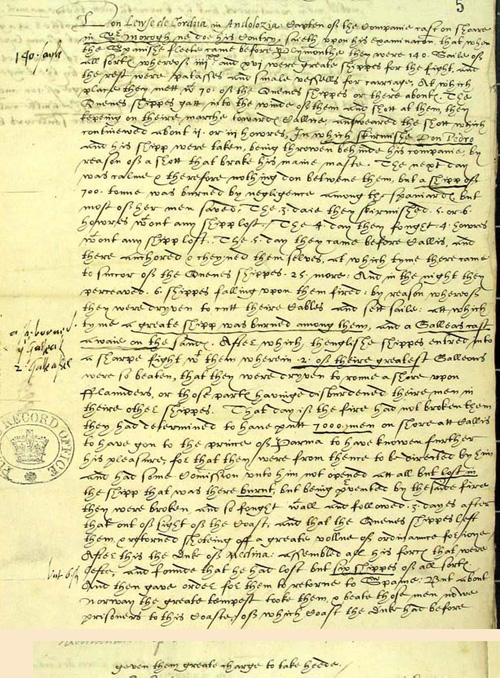 5
Don Lewse de Cordua in Andolozia Capten off the Companie cast on shoare
in Sr Morogh ne doe his Contry saieth upon his examinacon that when
the Spanishe fleete came before Plymmothe they were 140 Saile off
140 saile
all sortes wheroff and xvi were greate shippes for the fight, and
the rest were patasses and smale vessells for carriage. At which
place they mett wth 70 off the Quenes shippes or there about. The
Quenes shippes gatt into the winde off them and shott at them, they
keping on theire marche toward Callice, answeared the shott which
contineewed about ii or iii howres, In which skirmishe Don Pedro
and his shipp were taken, being throwen behinde his companie, by
reason off a shott that brake his maine maste. The next day
was calme & therefore nothing don betwene them, but a shipp off
700 tonne was burned by negligence among the spaniardes, but
most off her men saved. The 3 daie they skirmished 5 or 6
howres wtout any shipp lost. The 4 day they fought 4 howres
wtout any shipp lost. The 5 day they came before Callis, and
there anchored & theyned them selves, at which tyme there came
to succor off the Quenes shippes 25 more. And in the night they
perceaved 6 shippes falling upon them fired: by reason wheroff
they were dryven to cutt theire Cables and sett saile: att which
tyme a greate shipp was burned among them, and a Galleas cast
a sh: burned
awaie on the sandes. After which thenglishe shippes entred into
1 Galleas
a sharpe fight wth them wherein 2 off theire greatest Galleons
2 Galleons
were so beaten, that they were dryven to rome a shore upon
fflaunders, or those partes havinge disburdened theire men in
theire other shippes. That day is the fire had not broken them
they had determined to have putt 7000 men on shore at Callis
to have gon to the prince off Parma to have knowen further
his pleasure, for that they were from thence to be directed by him
and had some Comission unto him not opened att all but lost in
the shipp that was there burnt, but being prevented by the saide fire
they were broken and so fought wtall and followed 3 dayes after
that out off sight off the Coast, and that the Quenes shippes left
them & retorned shoting off a greate vollue off ordinance
After this the Duke off Medina: assembled all his fortes that were
lefte, and founde that he had lost but six shippes off all sortes
And then gave order for them to retorne to Spaine. But about
Norway the greate tempest tooke them, & beate those men nowe
prisoners to this Coaste, off which Coast the Duke had before
geven them greate charge to take heede.
RECORD OFFICE